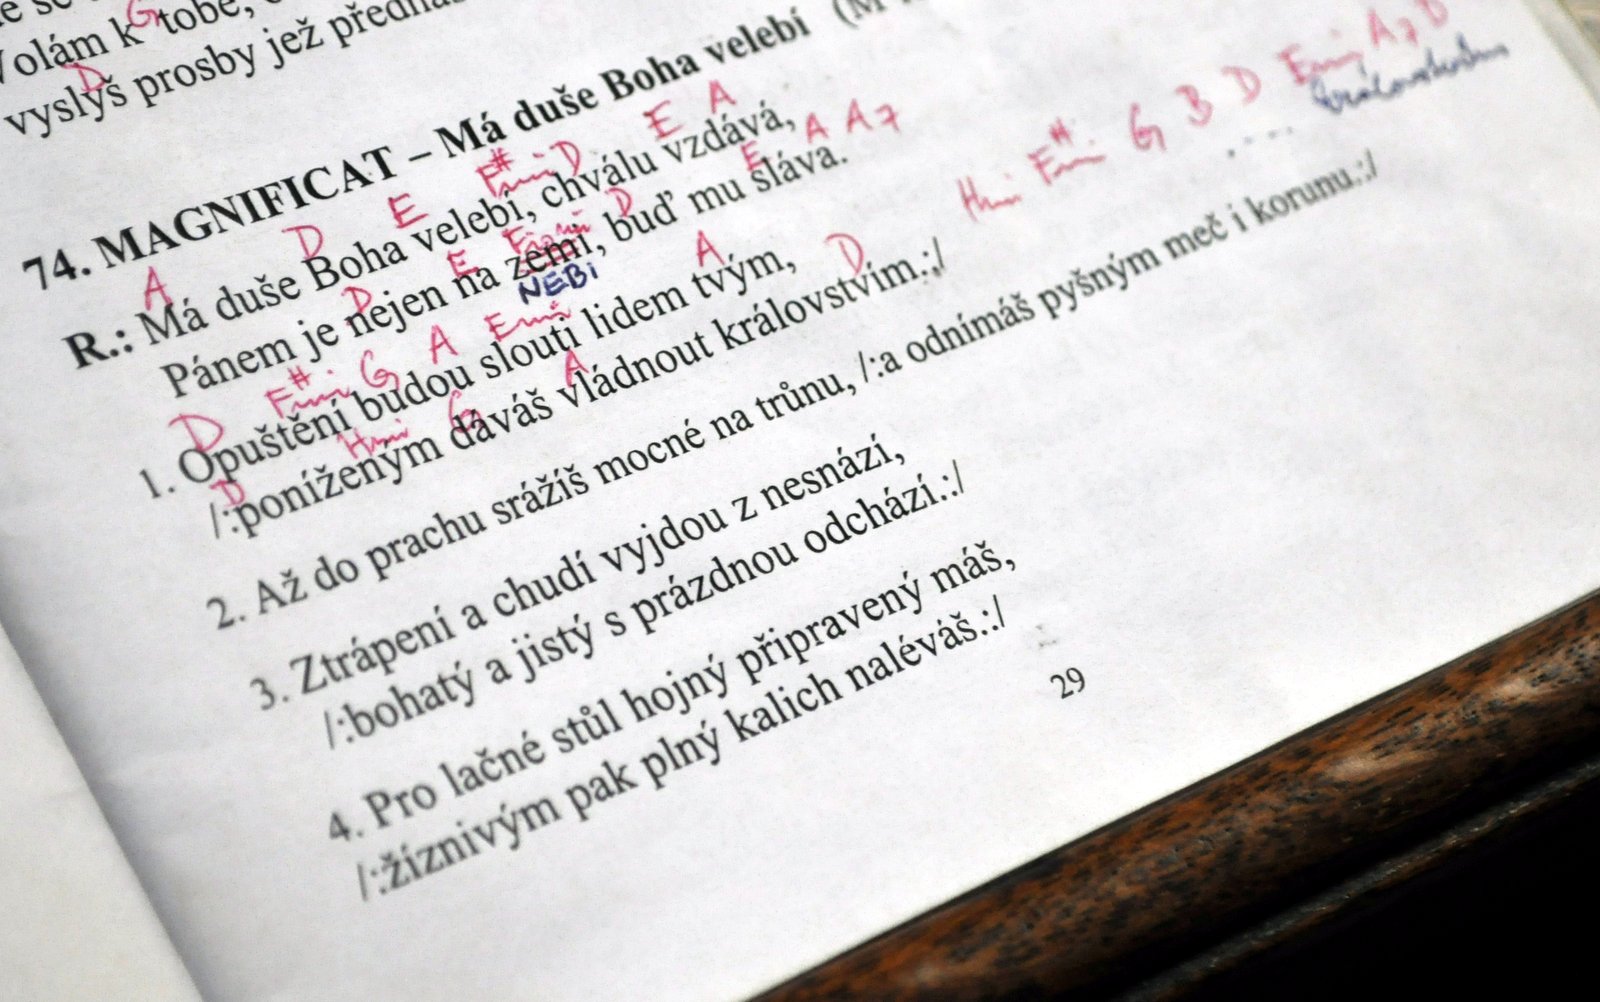 G
Volám k tobě,
D
vyslyš prosby jež
74. MAGNIFICAT – Má duše Boha velebí
A D E F#mi D E A
R.: Má duše Boha velebí, chválu vzdává,
D E D E A A7
Pánem je nejen na zemi, buď mu sláva.
NEBI
D F#mi G A Emi A D
1. Opuštění budou slouti lidem tvým,
D Hmi G A
/:poníženým dáváš vládnout královstvím.:/
Hmi F#mi G B D Emi A7 D
2. Až do prachu srážíš mocné na trůnu, /:a odnímáš pyšným meč i korunu.:/
3. Ztrápení a chudí vyjdou z nesnází,
/:bohatý a jistý s prázdnou odchází.:/
4. Pro lačné stůl hojný připravený máš,
/:žíznivým pak plný kalich naléváš.:/
29